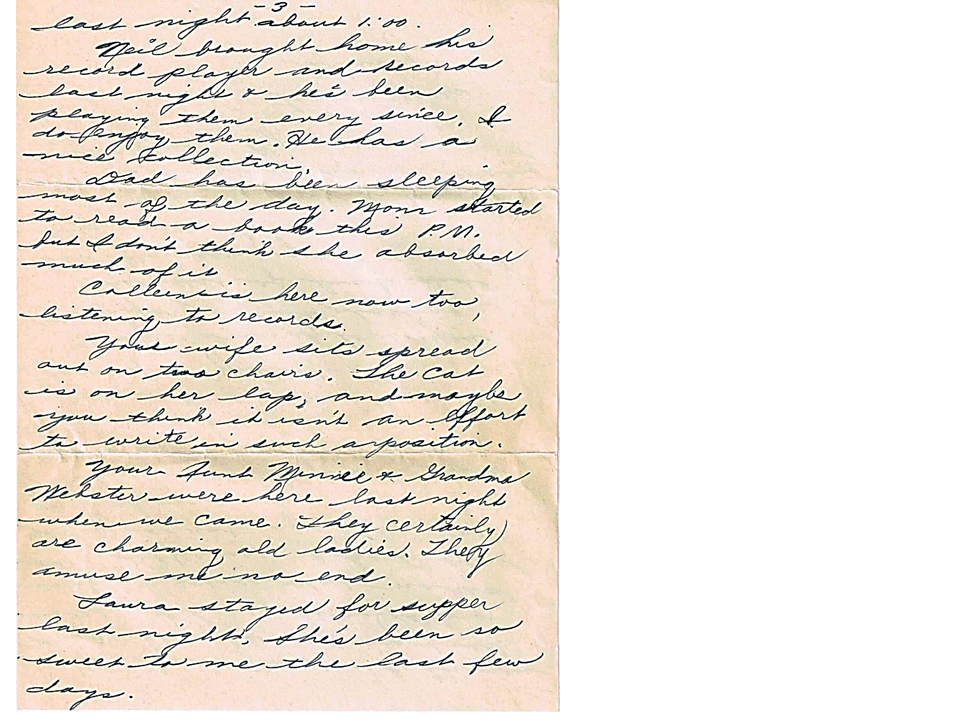 -3-
last night about 1:00.
Neil brought home his
record player and records
last night & he's been
playing them every since. I
do enjoy them. He has a
nice collection.
Dad has been sleeping
most of the day. Mom started
to read a book this P.M.
but I don't think she absorbed
much of it
Colleen is here now too,
listening to records.
Your wife sits spread
out on two chairs. The cat
is on her lap, and maybe
you think it isn't an effort
to write in such a position.
Your Aunt Minnie & Grandma
Webster were here last night
when we came. They certainly
are charming old ladies. They
amuse me no end.
Laura stayed for supper
last night. She's been so
sweet to me the last few
days.